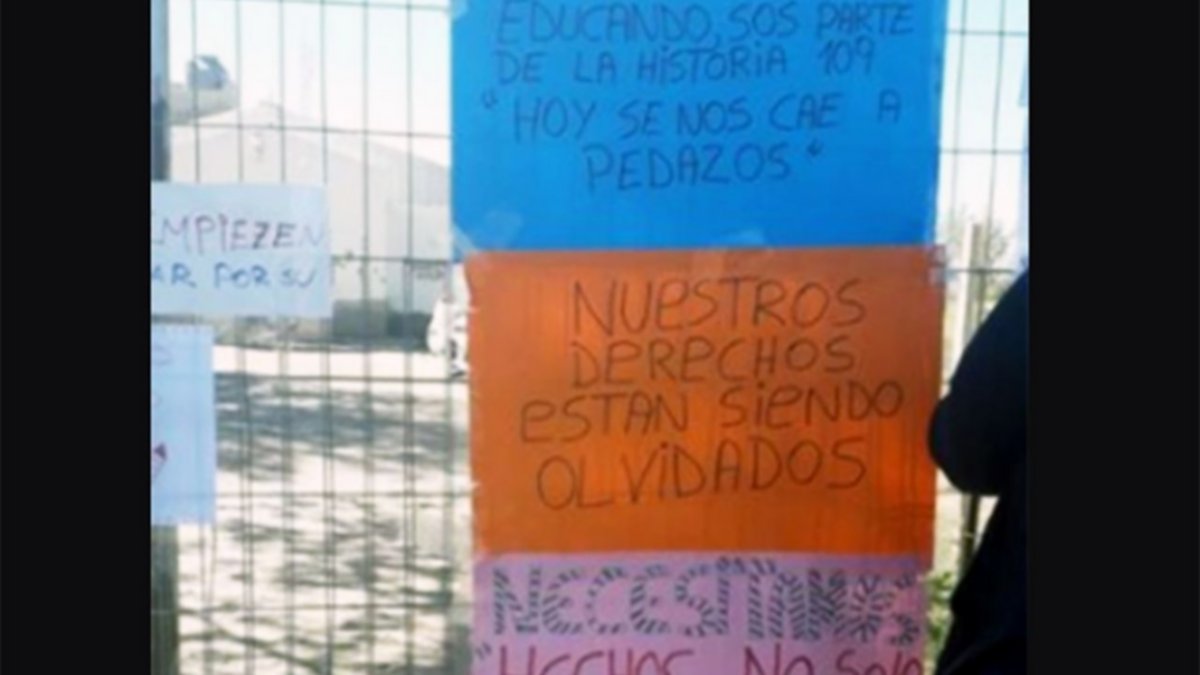 EDUCANDO, SOS PARTE
DE LA HISTORIA 109
"HOY SE NOS CAE A
PEDAZOS"
EMPIEZEN
AR POR SU
NUESTROS
DERECHOS
ESTAN SIENDO
OLVIDADOS
NECESITAMOS
"HECHOS NO SOLO